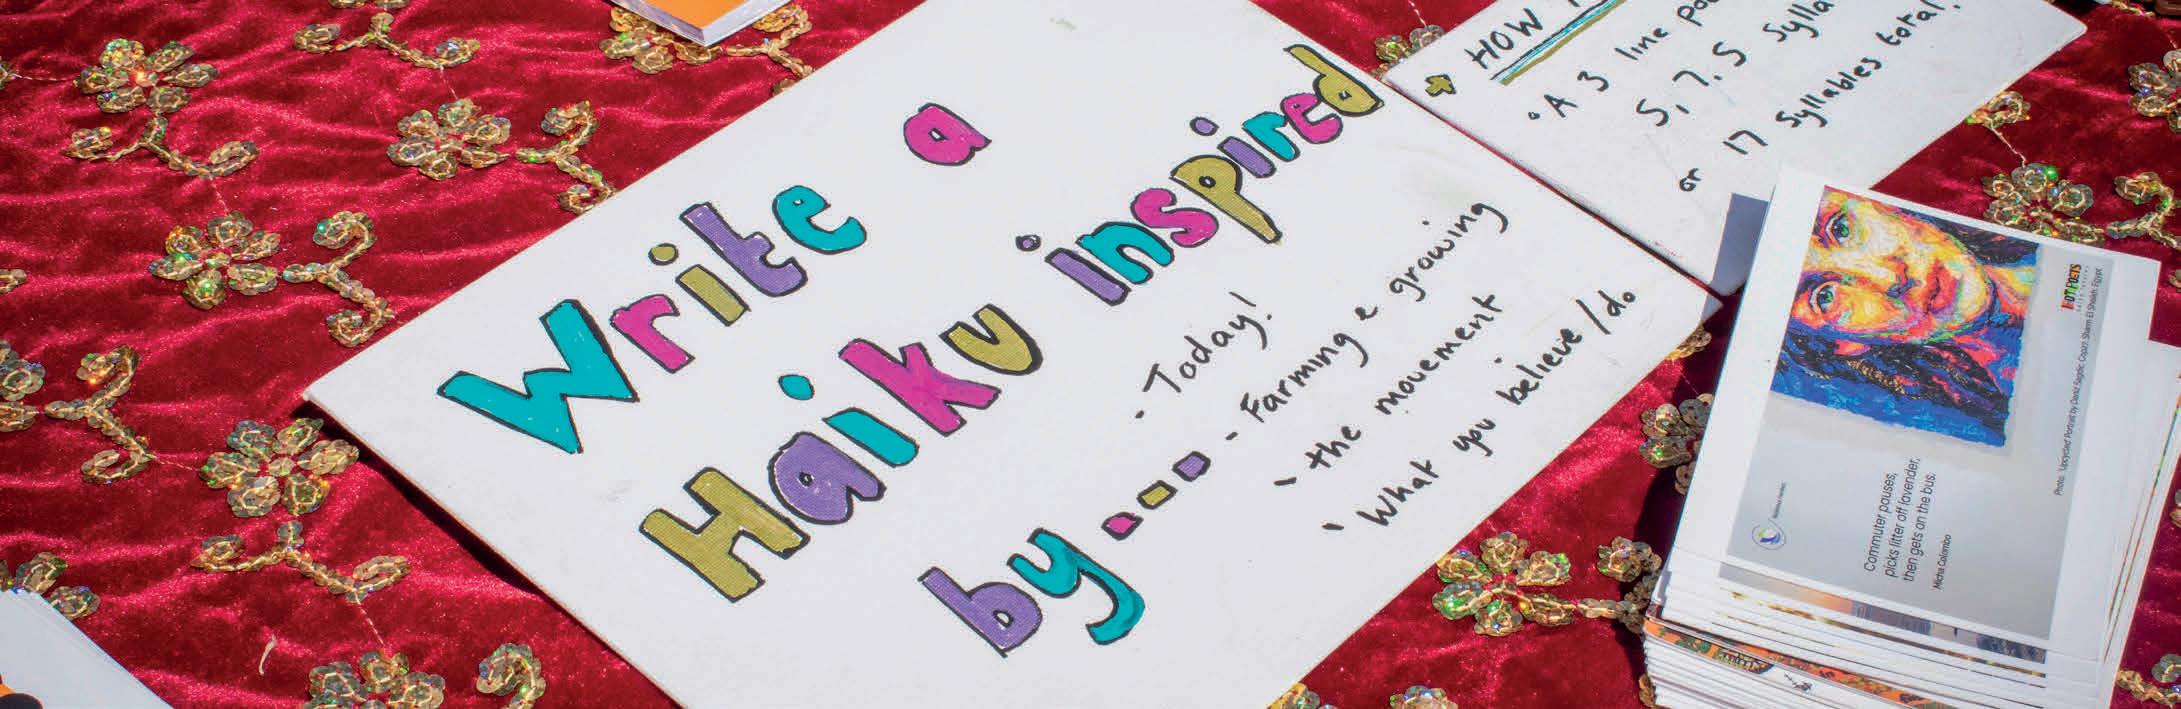 Write a
Haiku inspired
by ...
- Today!
- Farming & growing
- the movement
- What you believe / do
HOW
• A 3 line
5, 7, 5 sylla
or 17 syllables total.
HOT POETS
Photo: 'Upcycled Portrait by David Segdic, Cop27, Sharm El Sheikh, Egypt
Commuter pauses,
picks litter off lavender,
then gets on the bus.
Micha Colombo